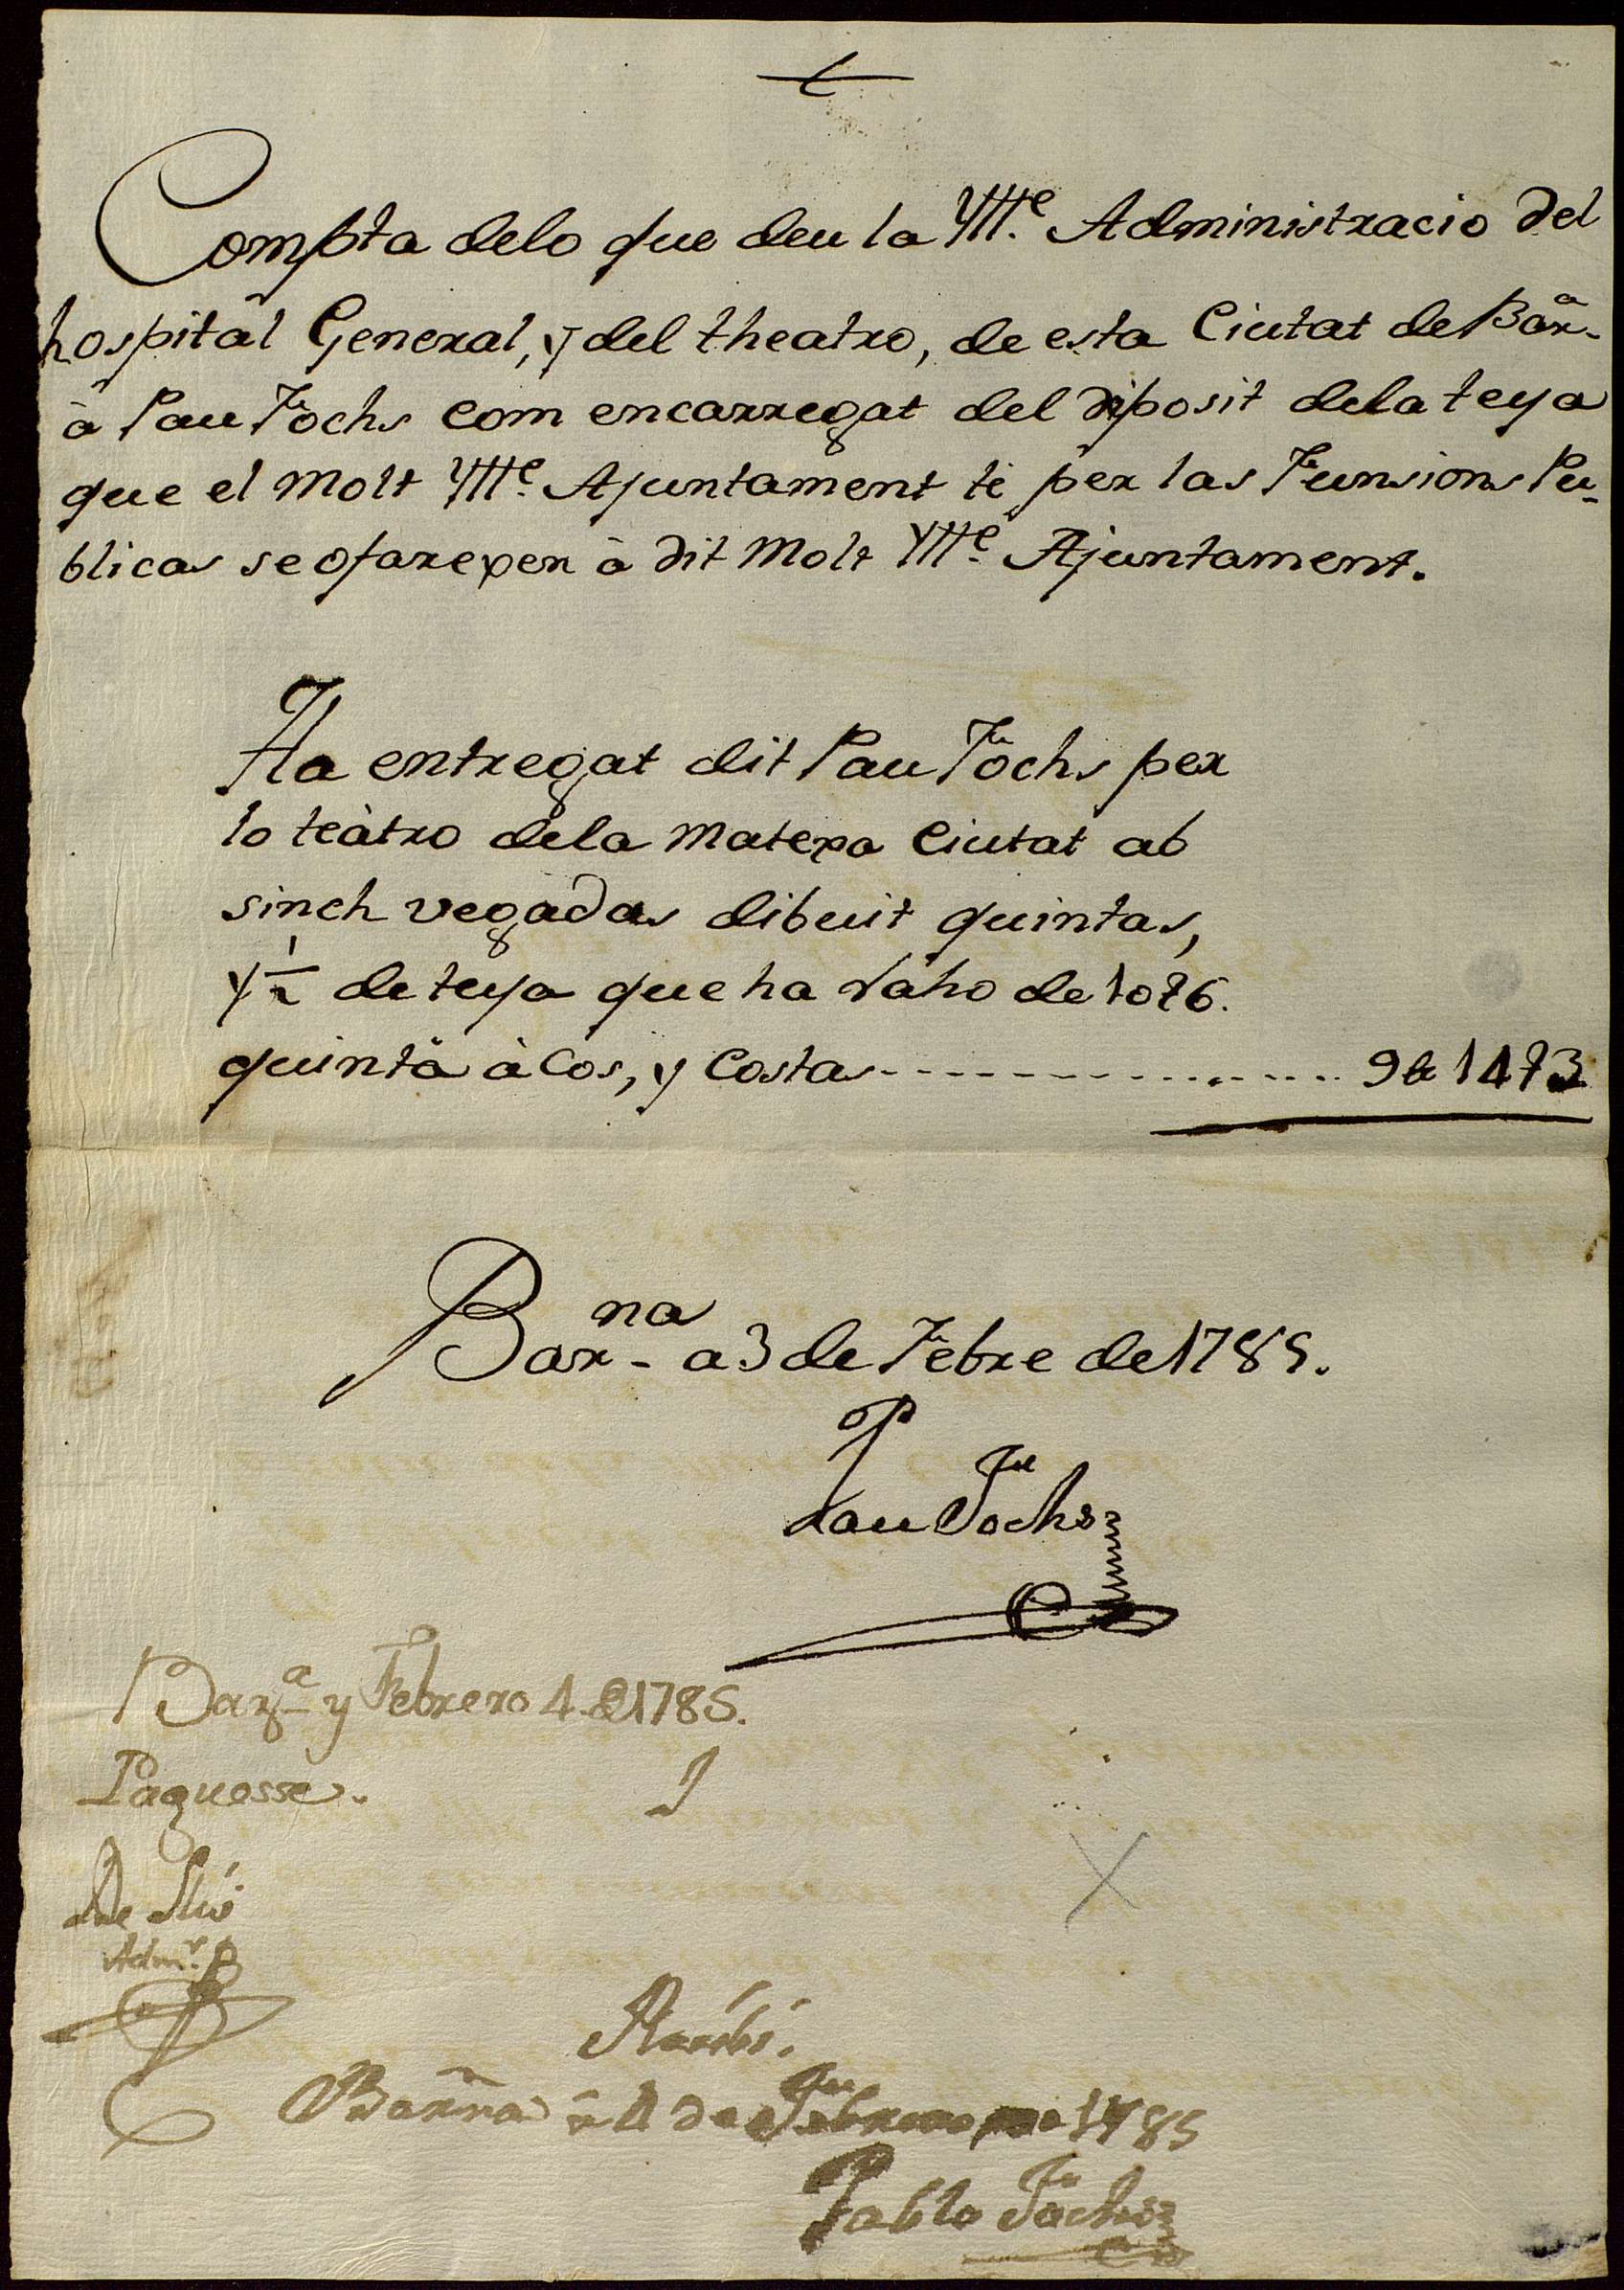 Compta delo que deu la Ylle. Administracio del
hospital General, y del theatro, de esta Ciutat de Bara.
à Pau Fochs com encarregat del diposit dela teya
que el Molt Ylle. Ajuntament té per las Funsions Pu-
blicas se ofarexen à dit Molt Ylle. Ajuntament.
Ha entregat dit Pau Fochs per
lo teàtro dela matexa Ciutat ab
sinch vegadas dibuit quintas,
y ½ de teya que ha raho de 10 ß 6.
quintà à Cos, y Costas 9 ℔ 14 ß 3
Barna a 3 de Febre de 1785.
Pau Fochs
Bara y Febrero 4 de 1785.
Paguesse.
De
Admr.
Recibí.
Barna à 4 de Febrero 1785
Pablo Fochs